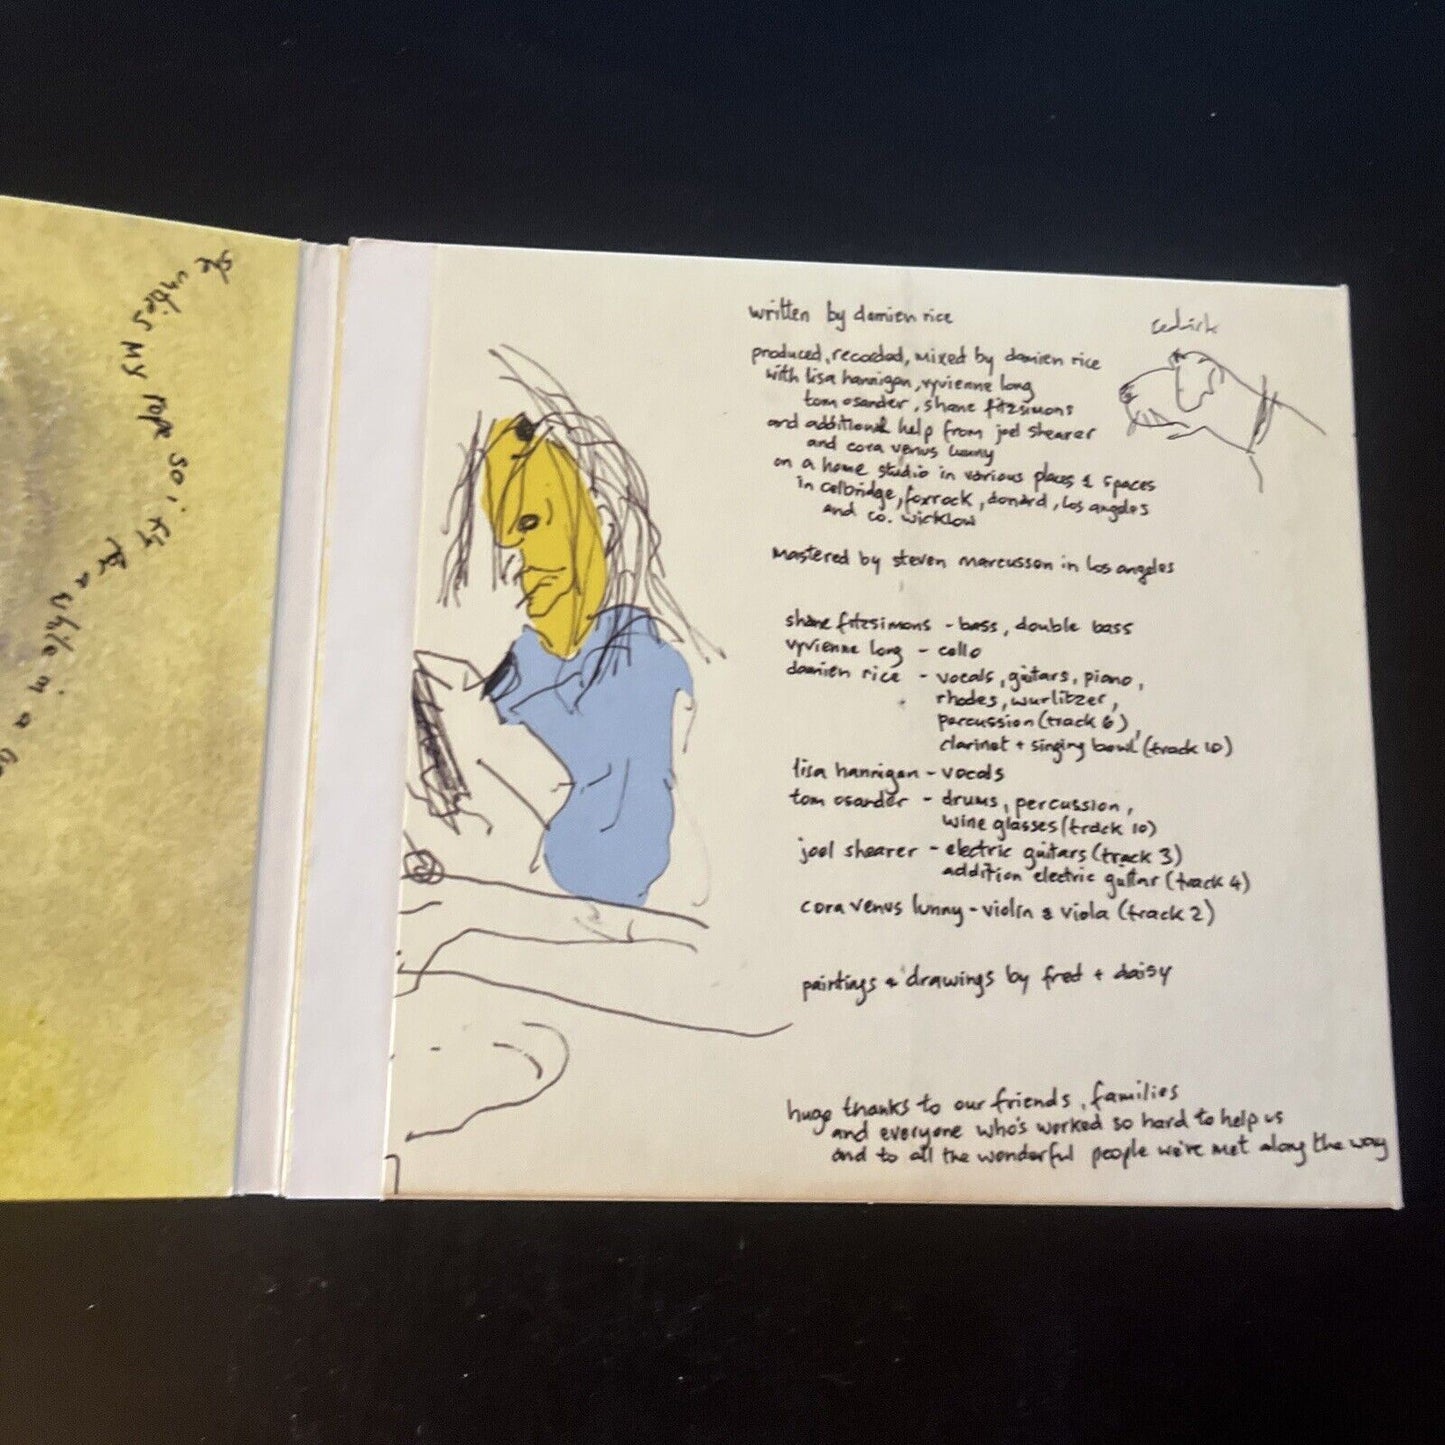 she unties my rope so i fly for a while in a
written by damien rice
cedrick
produced, recorded, mixed by damien rice
with lisa hannigan, vyvienne long
tom osander, shane fitzsimons
and additional help from joel shearer
and cora venus lunny
on a home studio in various places & spaces
in celbridge, foxrock, donard, los angeles
and co. wicklow
mastered by steven marcusson in los angeles
shane fitzsimons - bass, double bass
vyvienne long - cello
damien rice - vocals, guitars, piano,
rhodes, wurlitzer,
percussion (track 6),
clarinet + singing bowl (track 10)
lisa hannigan - vocals
tom osander - drums, percussion,
wine glasses (track 10)
joel shearer - electric guitars (track 3)
addition electric guitar (track 4)
cora venus lunny - violin & viola (track 2)
paintings & drawings by fred + daisy
huge thanks to our friends, families
and everyone who's worked so hard to help us
and to all the wonderful people we've met along the way